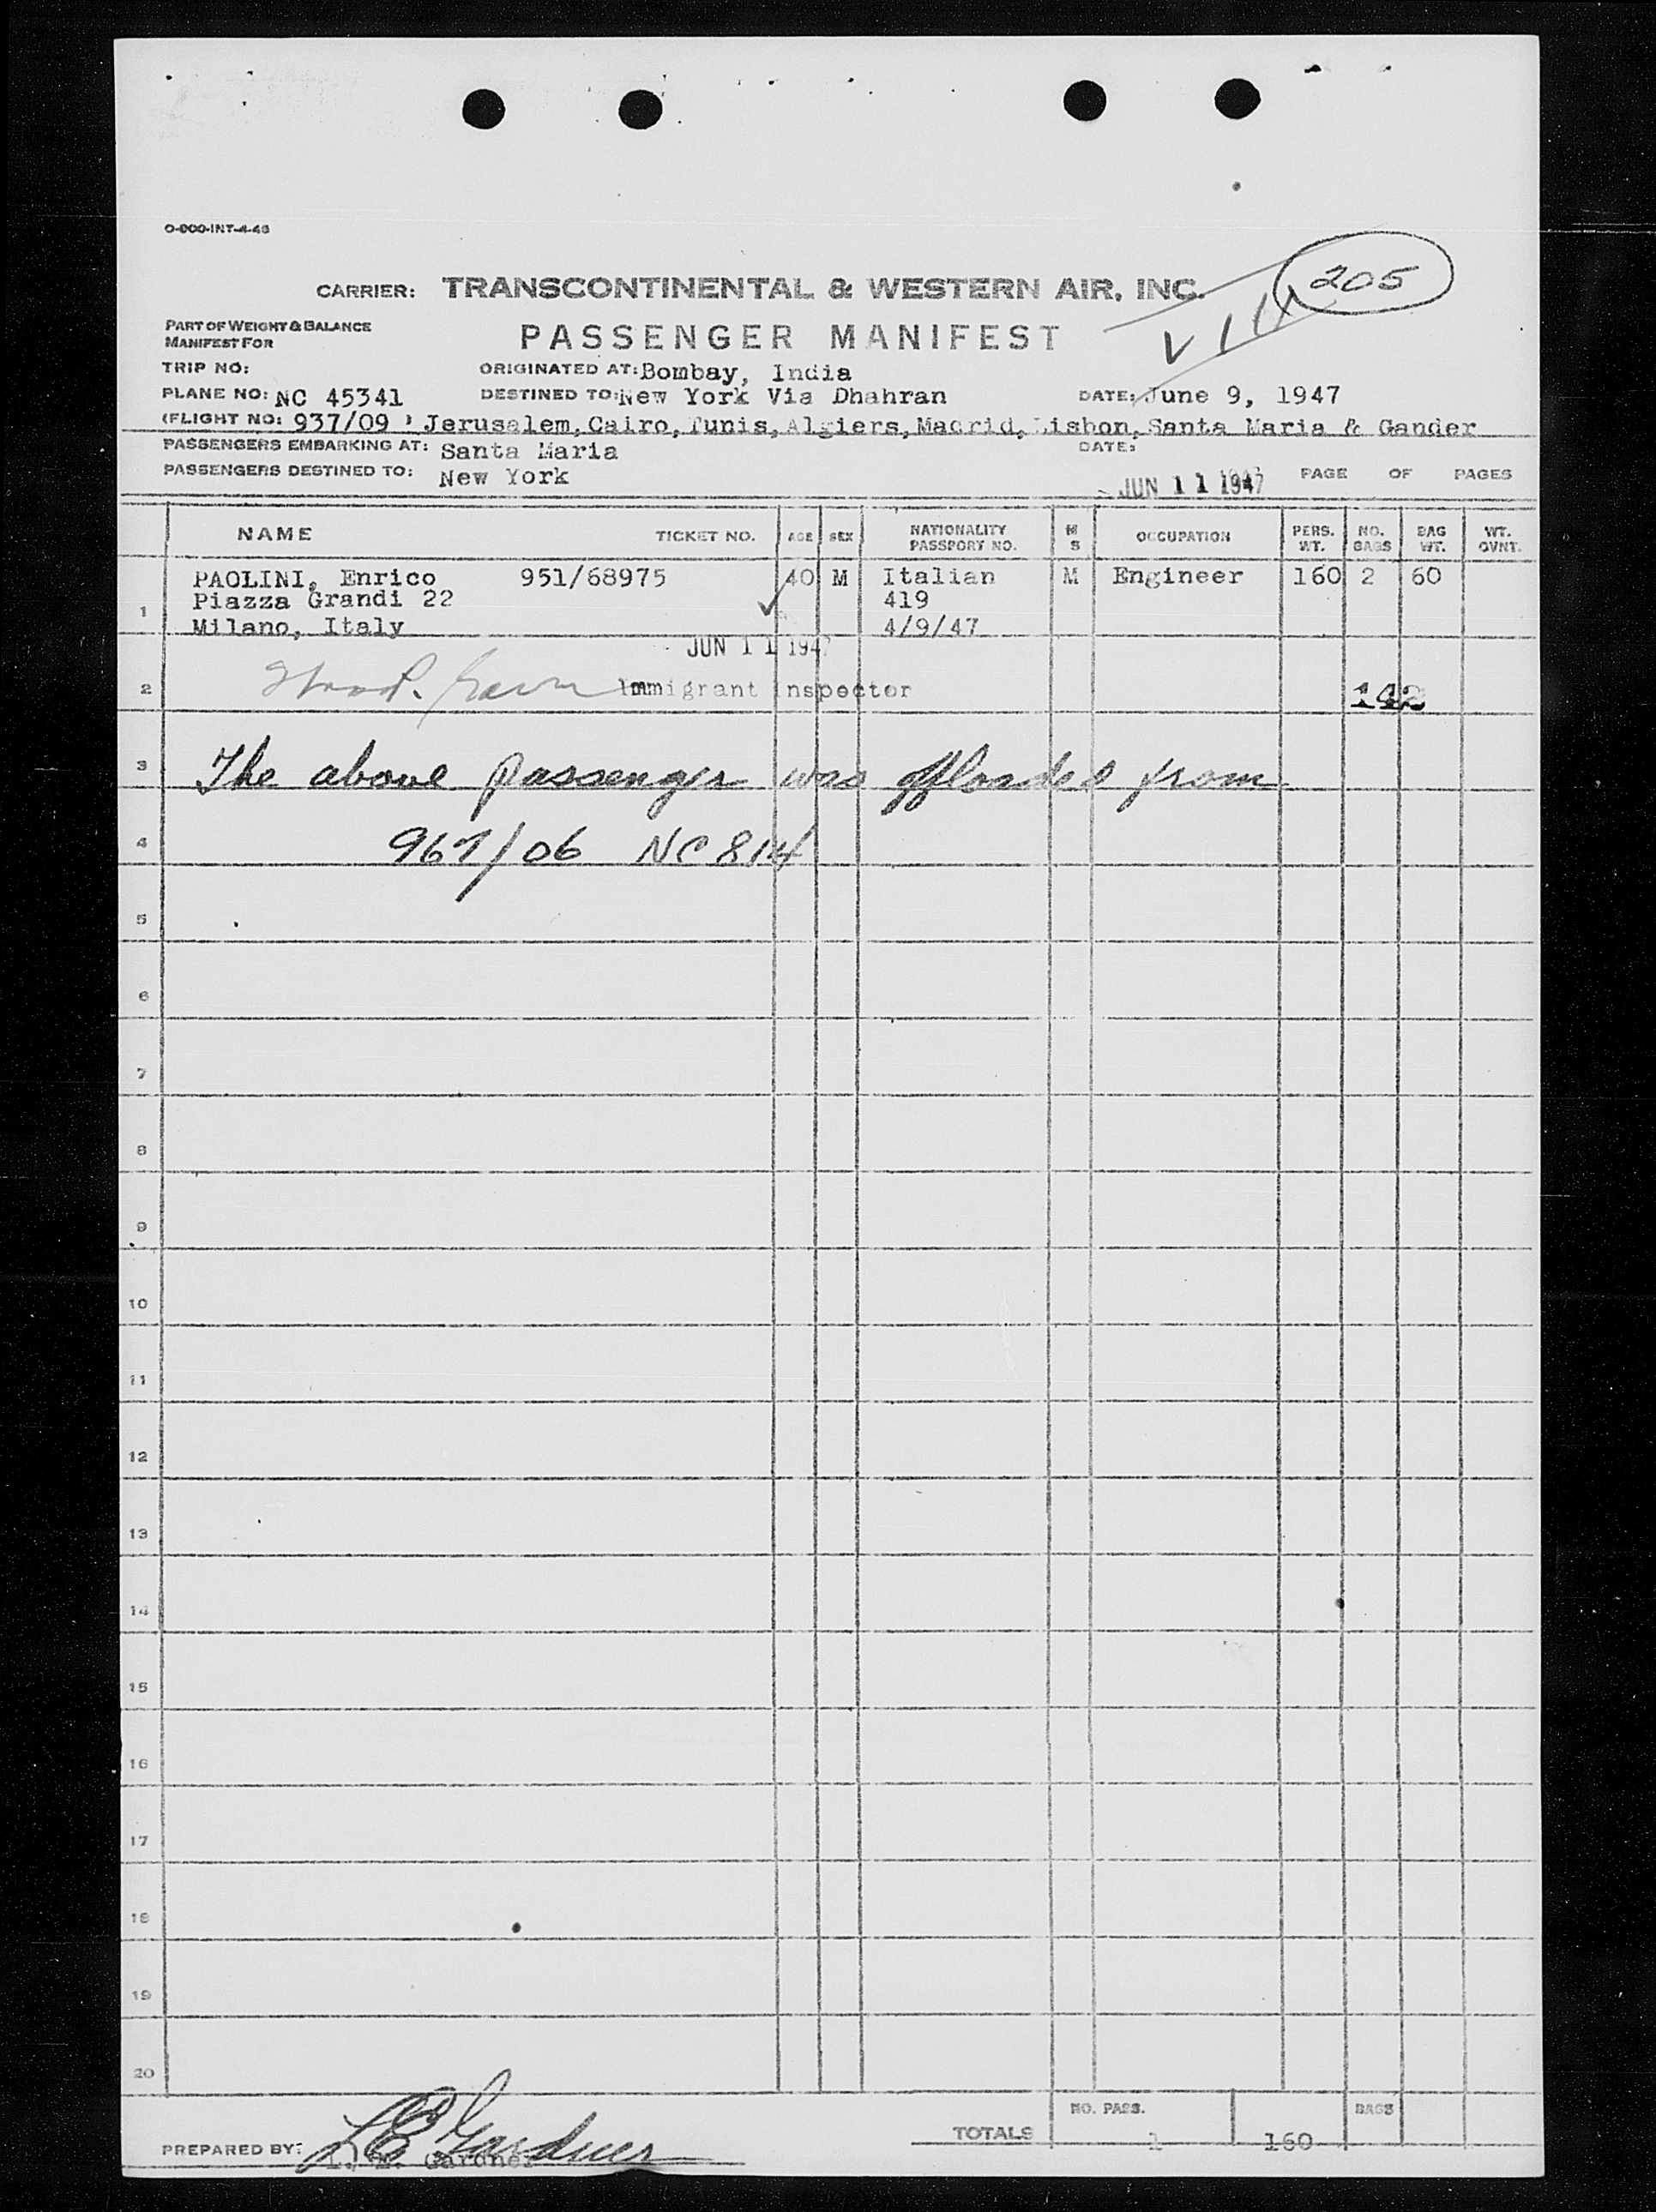 O-900-INT-4-46
205
CARRIER: TRANSCONTINENTAL & WESTERN AIR, INC.
PART OF WEIGHT & BALANCE
MANIFEST FOR
PASSENGER MANIFEST
TRIP NO: ORIGINATED AT: Bombay, India
PLANE NO: NC 45341 DESTINED TO: New York Via Dhahran DATE: June 9, 1947
(FLIGHT NO: 937/09 ) Jerusalem, Cairo, Tunis, Algiers, Madrid, Lisbon, Santa Maria & Gander
PASSENGERS EMBARKING AT: Santa Maria DATE:
PASSENGERS DESTINED TO: New York JUN 11 1947 PAGE OF PAGES
NAME TICKET NO. AGE SEX NATIONALITY PASSPORT NO. M S OCCUPATION PERS. WT. NO. BAGS BAG WT. WT. OVNT.
PAOLINI, Enrico 951/68975 40 M Italian M Engineer 160 2 60
Piazza Grandi 22 419
1
Milano, Italy 4/9/47
JUN 11 1947
2 Immigrant Inspector 142
3 The above passenger was offloaded from
4 967/06 NC 814
5
6
7
8
9
10
11
12
13
14
15
16
17
18
19
20
NO. PASS. BAGS
TOTALS 1 160
PREPARED BY: L E Gardner
L. E. Gardner